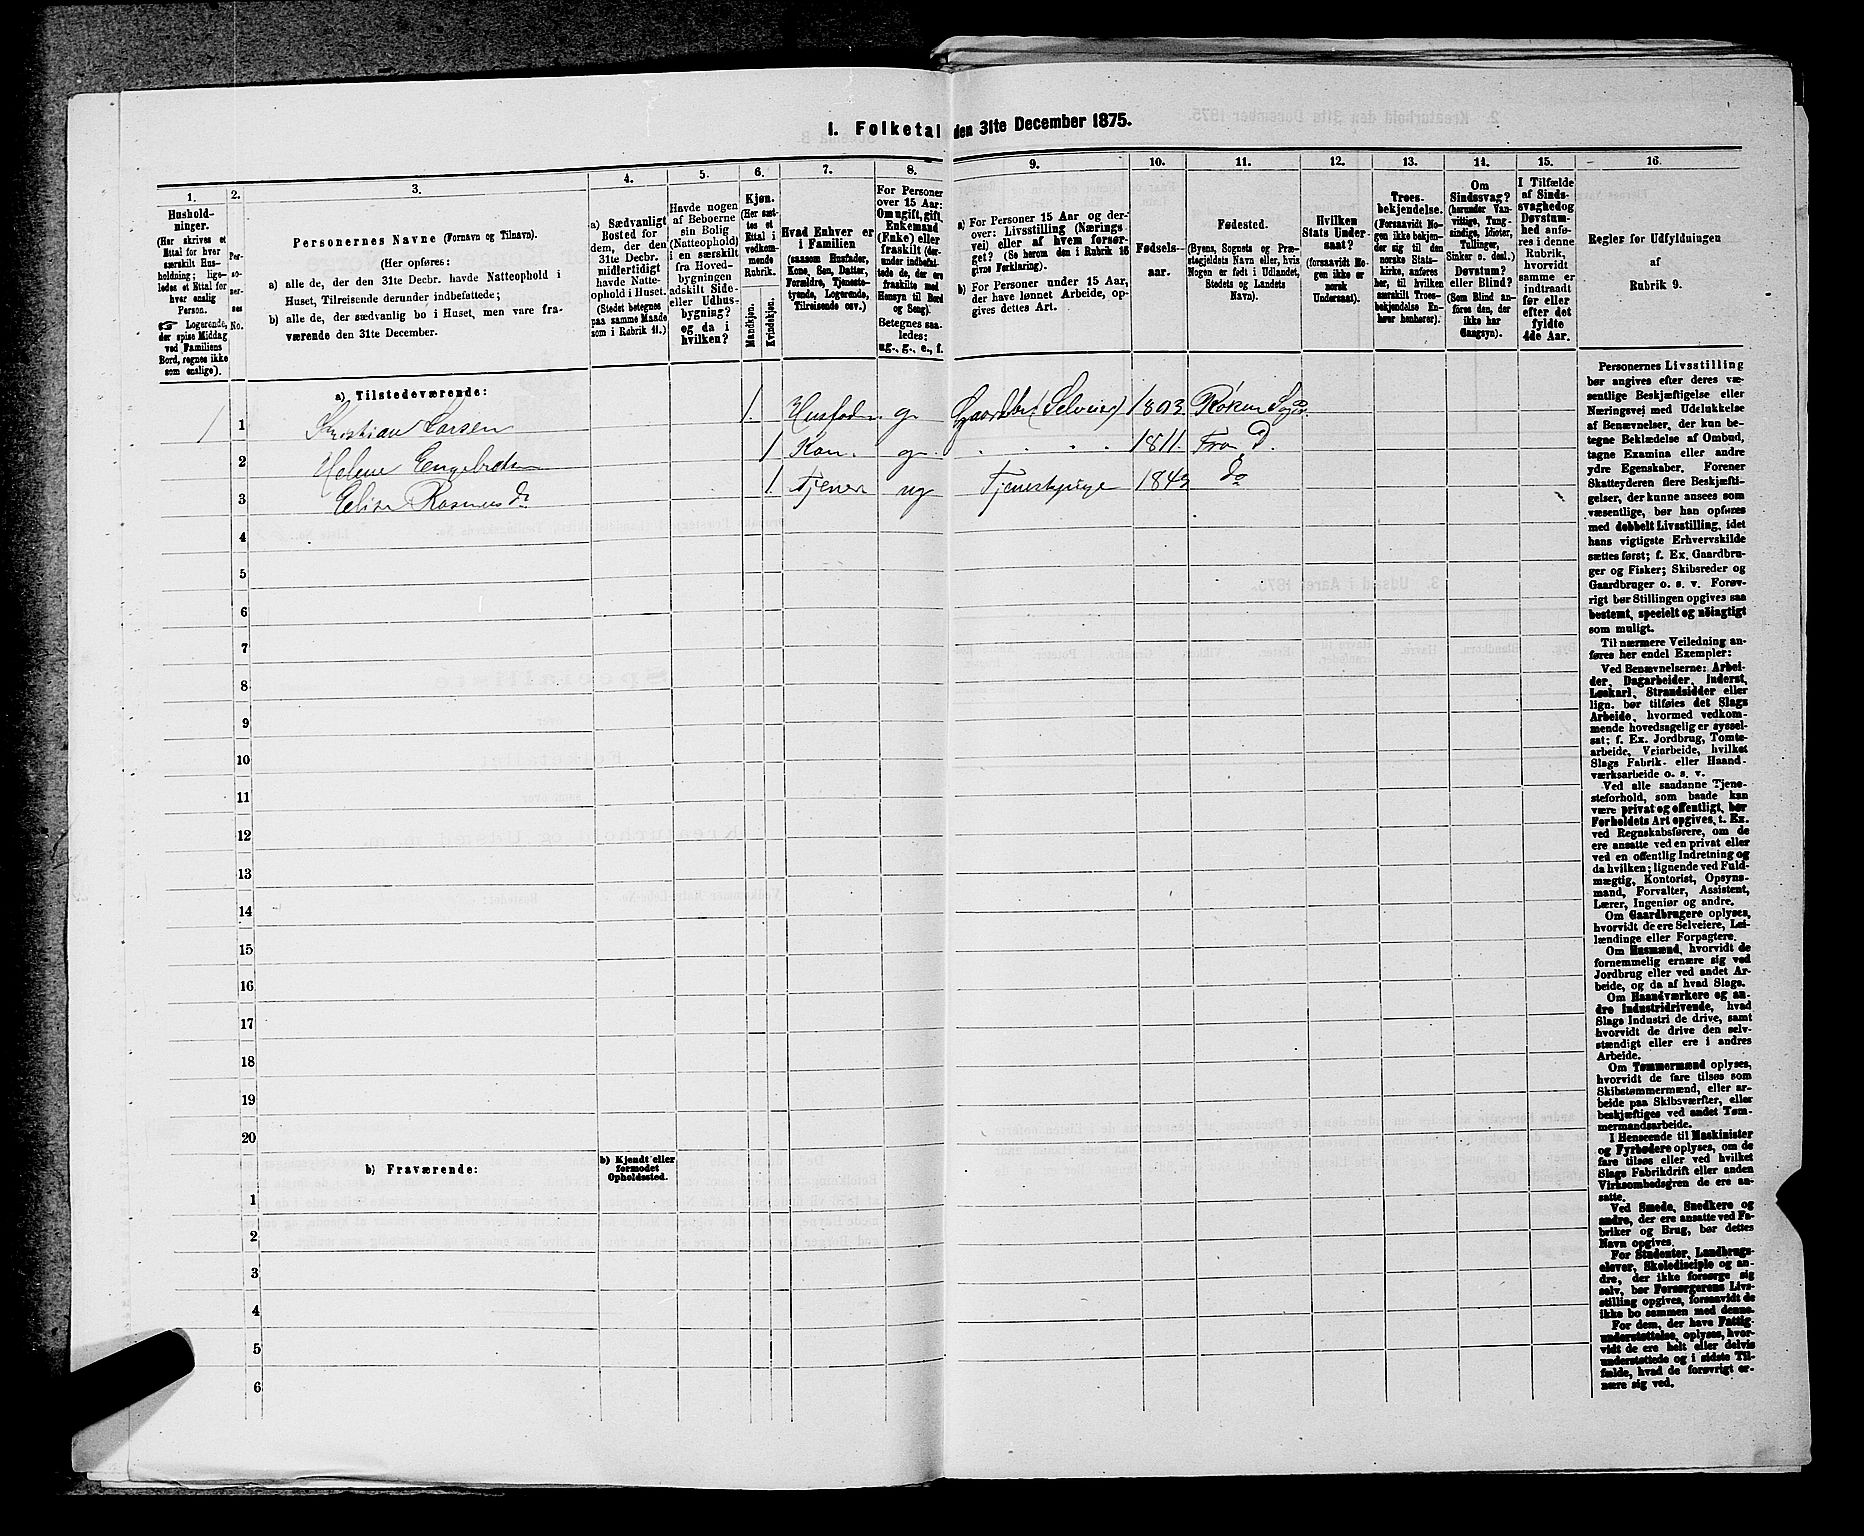 1. Folketal den 31te December 1875.
1. 2. 3. 4. 5. 6. 7. 8. 9. 10. 11. 12. 13. 14. 15. 16.
Hushold-
ninger.
(Her skrives et
Ettal for hver
særskilt Hus-
holdning; lige-
ledes et Ettal for
hver enslig
Person.
☞ Logerende,
der spise Middag
ved Familiens
Bord, regnes ikke
som enslige).
Per-
so-
ner-
nes
No.
Personernes Navne (Fornavn og Tilnavn).
(Her opføres:
a) alle de, der den 31te Decbr. havde Natteophold i
Huset, Tilreisende derunder indbefattede;
b) alle de, der sædvanlig bo i Huset, men vare fra-
værende den 31te December.
a) Sædvanligt
Bosted for
dem, der den
31te Decbr.
midlertidigt
havde Natte-
ophold i Huset.
(Stedet betegnes
paa samme Maade
som i Rubrik 11.)
Havde nogen
af Beboerne
sin Bolig
(Natteophold)
i en særskilt
fra Hoved-
bygningen
adskilt Side-
eller Udhus-
bygning?
og da i
hvilken?
Kjøn.
(Her sæt-
tes et
Ettal i
vedkom-
mende
Rubrik.
Mandkjøn.
Kvindekjøn.
Hvad Enhver er
i Familien
(saasom Husfader,
Kone, Søn, Datter,
Forældre, Tjeneste-
tyende, Logerende,
Tilreisende osv.)
For Personer
over 15 Aar:
Om ugift, gift,
Enkemand
(Enke) eller
fraskilt (der-
under indbefat-
tede de, der ere
fraskilte med
Hensyn til Bord
og Seng).
Betegnes saa-
ledes:
ug., g., e., f.
a) For Personer 15 Aar og der-
over: Livsstilling (Nærings-
vei) eller af hvem forsør-
get? (Se herom den i Rubrik 16
givne Forklaring).
b) For Personer under 15 Aar,
der have lønnet Arbeide, op-
gives dettes Art.
Fødsels-
aar.
Fødested.
(Byens, Sognets og Præ-
stegjeldets Navn eller, hvis
Nogen er født i Udlandet,
Stedets og Landets
Navn).
Hvilken
Stats Under-
saat?
(forsaavidt No-
gen ikke er
norsk
Undersaat).
Troes-
bekjendelse.
(Forsaavidt No-
gen ikke bekjen-
der sig til den
norske Stats-
kirke, anføres
her, til hvilken
særskilt Troes-
bekjendelse En-
hver henhører).
Om
Sindssvag?
(herunder Van-
vittige, Tung-
sindige, Idioter,
Tullinger,
Sinker o. desl.)
Døvstum?
eller Blind?
(Som Blind an-
føres den, der
ikke har
Gangsyn).
I Tilfælde
af Sinds-
svaghed og
Døvstum-
hed anfø-
res i denne
Rubrik,
hvorvidt
samme er
indtraadt
før eller
efter det
fyldte
4de Aar.
Regler for Udfyldningen
af
Rubrik 9.
a) Tilstedeværende:
1 1 Kristian Larsen 1. Husfader g Gaardbr (Selveier) 1803 Røken Sogn
2 Helene Engebretsen 1 Kon. g. . . . . 1811. Fron d.
3 Elise Rasmusd 1. Tjener ug Tjenestpige 1843 do
4
5
6
7
8
9
10
11
12
13
14
15
16
17
18
19
20
b) Fraværende:
b) Kjendt eller
formodet
Opholdssted.
1
2
3
4
5
6
Personernes Livsstilling
bør angives efter deres væ-
sentlige Beskjæftigelse eller
Næringsvei med Udelukkelse
af Benævnelser, der kun be-
tegne Beklædelse af Ombud,
tagne Examina eller andre
ydre Egenskaber. Forener
Skatteyderen flere Beskjæfti-
gelser, der kunne ansees som
væsentlige, bør han opføres
med dobbelt Livsstilling, idet
hans vigtigste Erhvervskilde
sættes først; f. Ex. Gaardbru-
ger og Fisker; Skibsreder og
Gaardbruger o. s. v. Forøv-
rigt bør Stillingen opgives saa
bestemt, specielt og nöiagtigt
som muligt.
Til nærmere Veiledning an-
føres her endel Exempler:
Ved Benævnelserne: Arbei-
der, Dagarbeider, Inderst,
Løskarl, Strandsidder eller
lign. bør tilføies det Slags
Arbeide, hvormed vedkom-
mende hovedsagelig er syssel-
sat; f. Ex. Jordbrug, Tomte-
arbeide, Veiarbeide, hvilket
Slags Fabrik- eller Haand-
værksarbeide o. s. v.
Ved alle saadanne Tjene-
steforhold, som baade kan
være privat og offentligt, bør
Forholdets Art opgives, t. Ex.
ved Regnskabsførere, om de
ere ansatte ved en privat eller
ved en offentlig Indretning og
da hvilken; lignende ved Fuld-
mægtig, Kontorist, Opsyns-
mand, Forvalter, Assistent,
Lærer, Ingeniør og andre.
Om Gaardbrugere oplyses,
hvorvidt de ere Selveiere, Lei-
lændinge eller Forpagtere.
Om Husmænd, hvorvidt de
fornemmelig ernære sig ved
Jordbrug eller ved andet Ar-
beide, og da af hvad Slags.
Om Haandværkere og an-
dre Industridrivende, hvad
Slags Industri de drive, samt
hvorvidt de drive den selv-
stændigt eller ere i andres
Arbeide.
Om Tømmermænd oplyses,
hvorvidt de fare tilsøs som
Skibstømmermænd, eller ar-
beide paa Skibsværfter, eller
beskjæftiges ved andet Tøm-
mermandsarbeide.
I Henseende til Maskinister
og Fyrbødere oplyses, om de
fare tilsøs eller ved hvilket
Slags Fabrikdrift eller anden
Virksomhedsgren de ere an-
satte.
Ved Smede, Snedkere og
andre, der ere ansatte ved Fa-
briker og Brug, bør dettes
Navn opgives.
For Studenter, Landbrugs-
elever, Skoledisciple og an-
dre, der ikke forsørge sig
selv, bør Forsørgerens Livs-
stilling opgives, forsaavidt de
ikke bo sammen med denne.
For dem, der have Fattig-
understøttelse, oplyses, hvor-
vidt de ere helt eller delvis
understøttede og i sidste Til-
fælde, hvad de forøvrigt er-
nære sig ved.